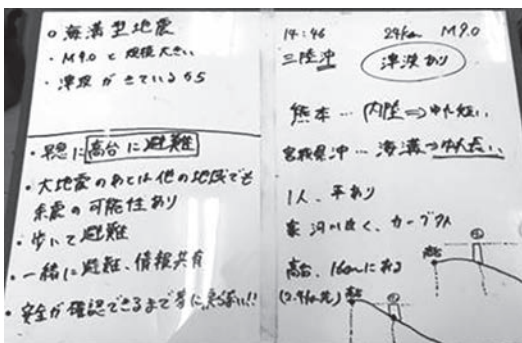 ○ 海溝型地震
・M9.0と規模大きい
・津波がきているから
・早急に高台に避難
・大地震のあとは他の地域でも
余震の可能性あり
・歩いて避難
・一緒に避難、情報共有
・安全が確認できるまで
14:46 24km M9.0
三陸沖 津波あり
熊本…内陸⇒ゆれ短い
宮城県沖…海溝⇒ゆれ長い
1人、車あり
家 河川近く、カーブ
高台、16mにある